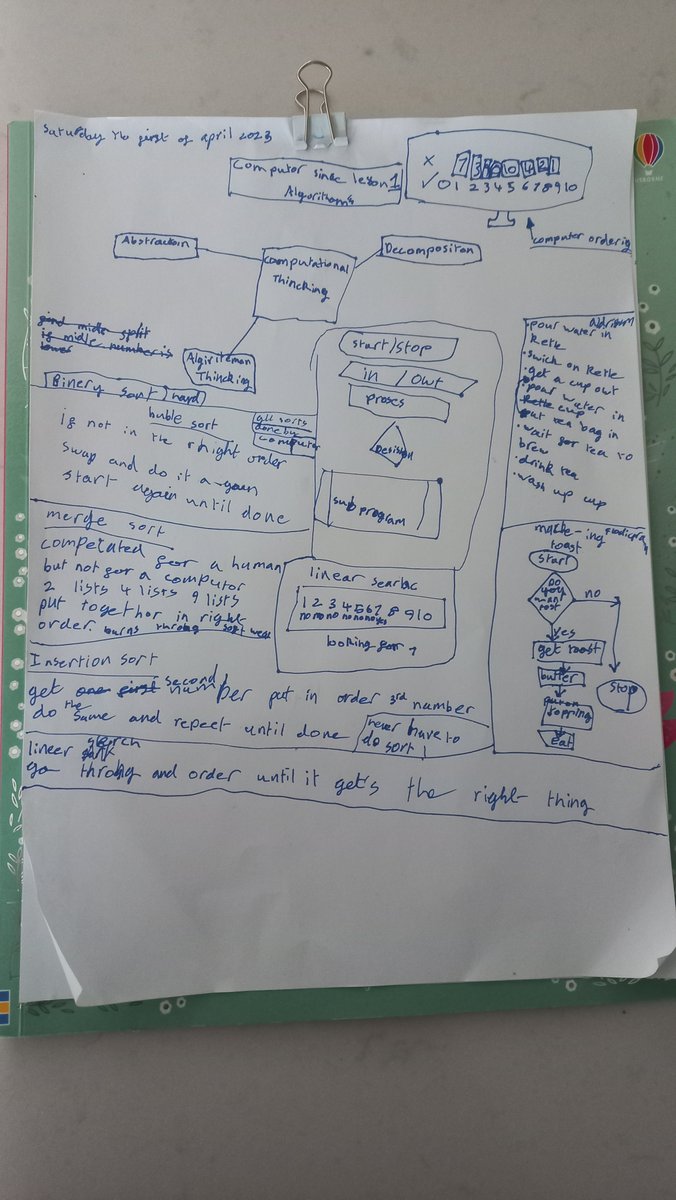 Saturday 1st of april 2023
Computor sinse lesson 1
Algorithom's
x 7 3 0 4 2 1
✓ 0 1 2 3 4 5 6 7 8 9 10
computer ordering
Abstraction
Computational
Thincking
Decompositon
Algiriteman
Thincking
find midle split
if midle number is
lower
Binery sort hard
buble sort
all sorts
done by
computor
if not in the rhight order
swap and do it again
start again until done
merge sort
competated for a human
but not for a computor
2 lists 4 lists 9 lists
put together in right
order.
Insertion sort
get one first second number put in order 3rd number
do the same and repeet until done
never have to
do sort 1
lineer search
go throgh and order until it get's the right thing
start/stop
in / out
proses
Desison
sub program
linear searbc
1 2 3 4 5 6 7 8 9 10
no no no no no no yes
looking for 7
• pour water in
ketle
• swich on ketle
• get a cup out
• pour water in
ketle cup
put tea bag in
• wait for tea to
brew
• drink tea
• wash up cup
make-ing
toast
start
Do
you
want
tost
no
yes
get toast
butter
put on
topping
eat
stop
USBORNE